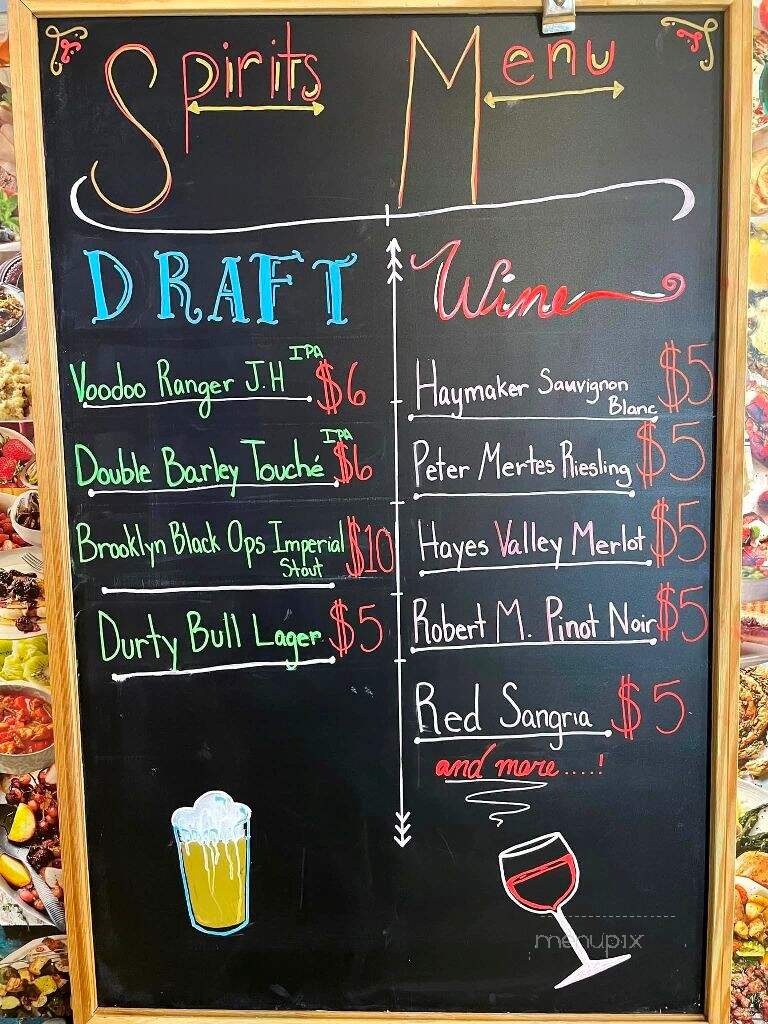 Spirits Menu
DRAFT
Voodoo Ranger J.H IPA $6
Double Barley Touché IPA $6
Brooklyn Black Ops Imperial $10
Stout
Durty Bull Lager $5
Wine
Haymaker Sauvignon $5
Blanc
Peter Mertes Riesling $5
Hayes Valley Merlot $5
Robert M. Pinot Noir $5
Red Sangria $5
and more....!
menupix